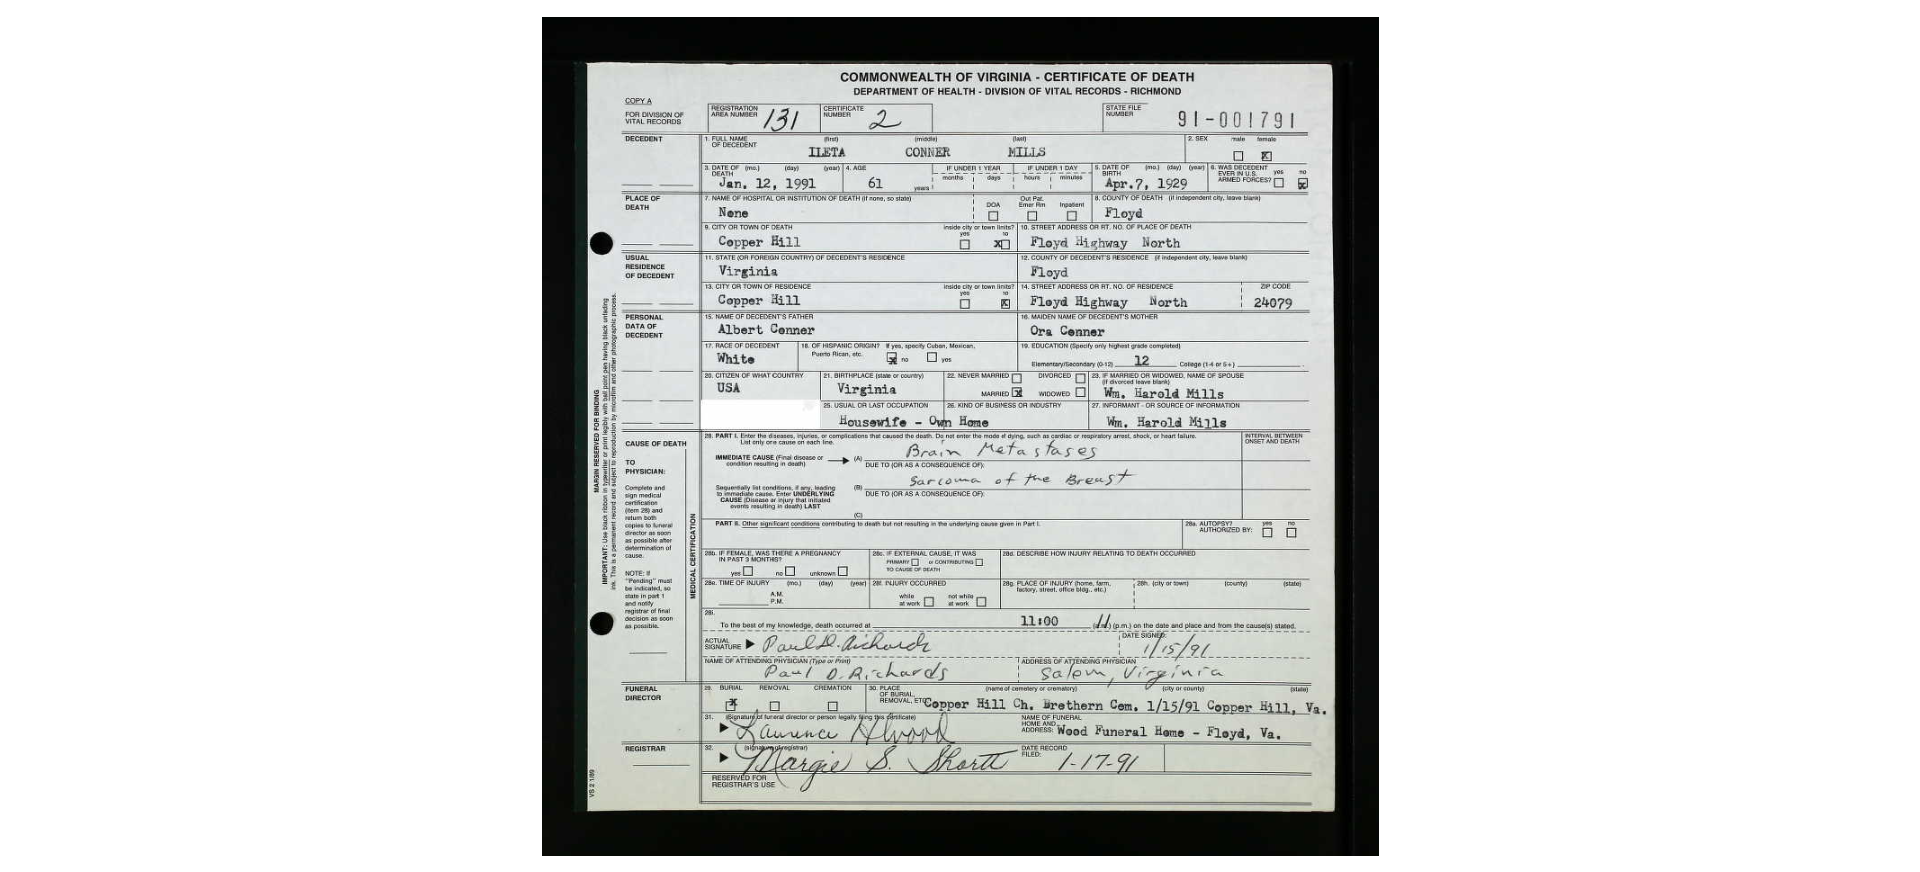 COMMONWEALTH OF VIRGINIA - CERTIFICATE OF DEATH
DEPARTMENT OF HEALTH - DIVISION OF VITAL RECORDS - RICHMOND
COPY A
FOR DIVISION OF VITAL RECORDS
REGISTRATION AREA NUMBER 131
CERTIFICATE NUMBER 2
STATE FILE NUMBER 91-001791
DECEDENT
1. FULL NAME OF DECEDENT (first) (middle) (last)
ILETA CONNER MILLS
2. SEX male female X
3. DATE OF DEATH (mo.) (day) (year) Jan. 12, 1991
4. AGE 61 years
IF UNDER 1 YEAR months days
IF UNDER 1 DAY hours minutes
5. DATE OF BIRTH (mo.) (day) (year) Apr.7, 1929
6. WAS DECEDENT EVER IN U.S. ARMED FORCES? yes no X
PLACE OF DEATH
7. NAME OF HOSPITAL OR INSTITUTION OF DEATH (if none, so state)
None
DOA Out Pat. Emer Rm Inpatient
8. COUNTY OF DEATH (if independent city, leave blank)
Floyd
9. CITY OR TOWN OF DEATH
Copper Hill
inside city or town limits? yes no X
10. STREET ADDRESS OR RT. NO. OF PLACE OF DEATH
Floyd Highway North
USUAL RESIDENCE OF DECEDENT
11. STATE (OR FOREIGN COUNTRY) OF DECEDENT'S RESIDENCE
Virginia
12. COUNTY OF DECEDENT'S RESIDENCE (if independent city, leave blank)
Floyd
13. CITY OR TOWN OF RESIDENCE
Copper Hill
inside city or town limits? yes no X
14. STREET ADDRESS OR RT. NO. OF RESIDENCE
Floyd Highway North
ZIP CODE
24079
PERSONAL DATA OF DECEDENT
15. NAME OF DECEDENT'S FATHER
Albert Conner
16. MAIDEN NAME OF DECEDENT'S MOTHER
Ora Conner
17. RACE OF DECEDENT
White
18. OF HISPANIC ORIGIN? If yes, specify Cuban, Mexican, Puerto Rican, etc. X no yes
19. EDUCATION (Specify only highest grade completed)
Elementary/Secondary (0-12) 12 College (1-4 or 5+)
20. CITIZEN OF WHAT COUNTRY
USA
21. BIRTHPLACE (state or country)
Virginia
22. NEVER MARRIED DIVORCED
MARRIED X WIDOWED
23. IF MARRIED OR WIDOWED, NAME OF SPOUSE (if divorced leave blank)
Wm. Harold Mills
25. USUAL OR LAST OCCUPATION
26. KIND OF BUSINESS OR INDUSTRY
Housewife - Own Home
27. INFORMANT - OR SOURCE OF INFORMATION
Wm. Harold Mills
CAUSE OF DEATH
TO PHYSICIAN:
Complete and sign medical certification (item 28) and return both copies to funeral director as soon as possible after determination of cause.
NOTE: If "Pending" must be indicated, so state in part 1 and notify registrar of final decision as soon as possible.
MEDICAL CERTIFICATION
28. PART I. Enter the diseases, injuries, or complications that caused the death. Do not enter the mode of dying, such as cardiac or respiratory arrest, shock, or heart failure.
List only one cause on each line.
INTERVAL BETWEEN ONSET AND DEATH
IMMEDIATE CAUSE (Final disease or condition resulting in death) (A) Brain Metastases
DUE TO (OR AS A CONSEQUENCE OF):
Sequentially list conditions, if any, leading to immediate cause. Enter UNDERLYING CAUSE (Disease or injury that initiated events resulting in death) LAST
(B) Sarcoma of the Breast
DUE TO (OR AS A CONSEQUENCE OF):
(C)
PART II. Other significant conditions contributing to death but not resulting in the underlying cause given in Part I.
28a. AUTOPSY? AUTHORIZED BY: yes no
28b. IF FEMALE, WAS THERE A PREGNANCY IN PAST 3 MONTHS?
yes no unknown
28c. IF EXTERNAL CAUSE, IT WAS
PRIMARY or CONTRIBUTING
TO CAUSE OF DEATH
28d. DESCRIBE HOW INJURY RELATING TO DEATH OCCURRED
28e. TIME OF INJURY (mo.) (day) (year)
A.M.
P.M.
28f. INJURY OCCURRED
while at work not while at work
28g. PLACE OF INJURY (home, farm, factory, street, office bldg., etc.)
28h. (city or town) (county) (state)
28i.
To the best of my knowledge, death occurred at 11:00 (a.m.) (p.m.) on the date and place and from the cause(s) stated.
ACTUAL SIGNATURE Paul D. Richards
DATE SIGNED: 1/15/91
NAME OF ATTENDING PHYSICIAN (Type or Print)
Paul D. Richards
ADDRESS OF ATTENDING PHYSICIAN
Salem, Virginia
FUNERAL DIRECTOR
29. BURIAL X REMOVAL CREMATION
30. PLACE OF BURIAL, REMOVAL, ETC. (name of cemetery or crematory) (city or county) (state)
Copper Hill Ch. Brethern Cem. 1/15/91 Copper Hill, Va.
31. (Signature of funeral director or person legally filing this certificate)
NAME OF FUNERAL HOME AND ADDRESS: Wood Funeral Home - Floyd, Va.
REGISTRAR
32. (signature of registrar)
Margie S. Shortt
DATE RECORD FILED: 1-17-91
RESERVED FOR REGISTRAR'S USE
VS 2 1/89
MARGIN RESERVED FOR BINDING